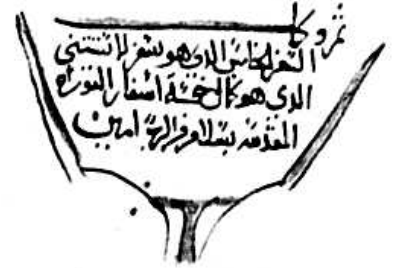 تم وكمل
السفر الخامس الذي هو سفر الاستثنى
الذي هو كمال خمسة اسفار التوراه
المقدسه بسلام من الرب امين